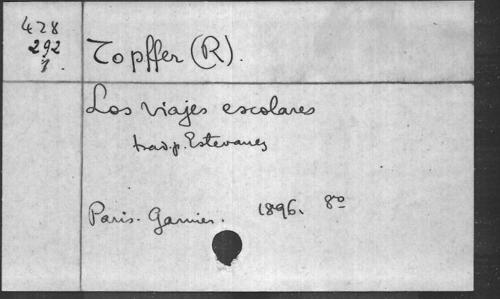 428
292
7.
Topffer (R).
Los viajes escolares
trad. p. Estevanez
Paris. Garnier. 1896. 8º